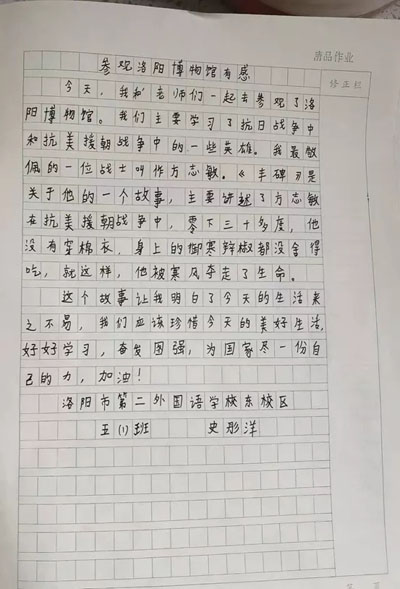 精品作业
修正栏
参观洛阳博物馆有感
今天，我和老师们一起去参观了洛
阳博物馆。我们主要学习了抗日战争中
和抗美援朝战争中的一些英雄。我最敬
佩的一位战士叫作方志敏。《丰碑》是
关于他的一个故事，主要讲述了方志敏
在抗美援朝战争中，零下三十多度，他
没有穿棉衣，身上的御寒辣椒都没舍得
吃，就这样，他被寒风夺走了生命。
这个故事让我明白了今天的生活来
之不易，我们应该珍惜今天的美好生活，
好好学习，奋发图强，为国家尽一份自
己的力，加油！
洛阳市第二外国语学校东校区
五(1)班 史彤洋